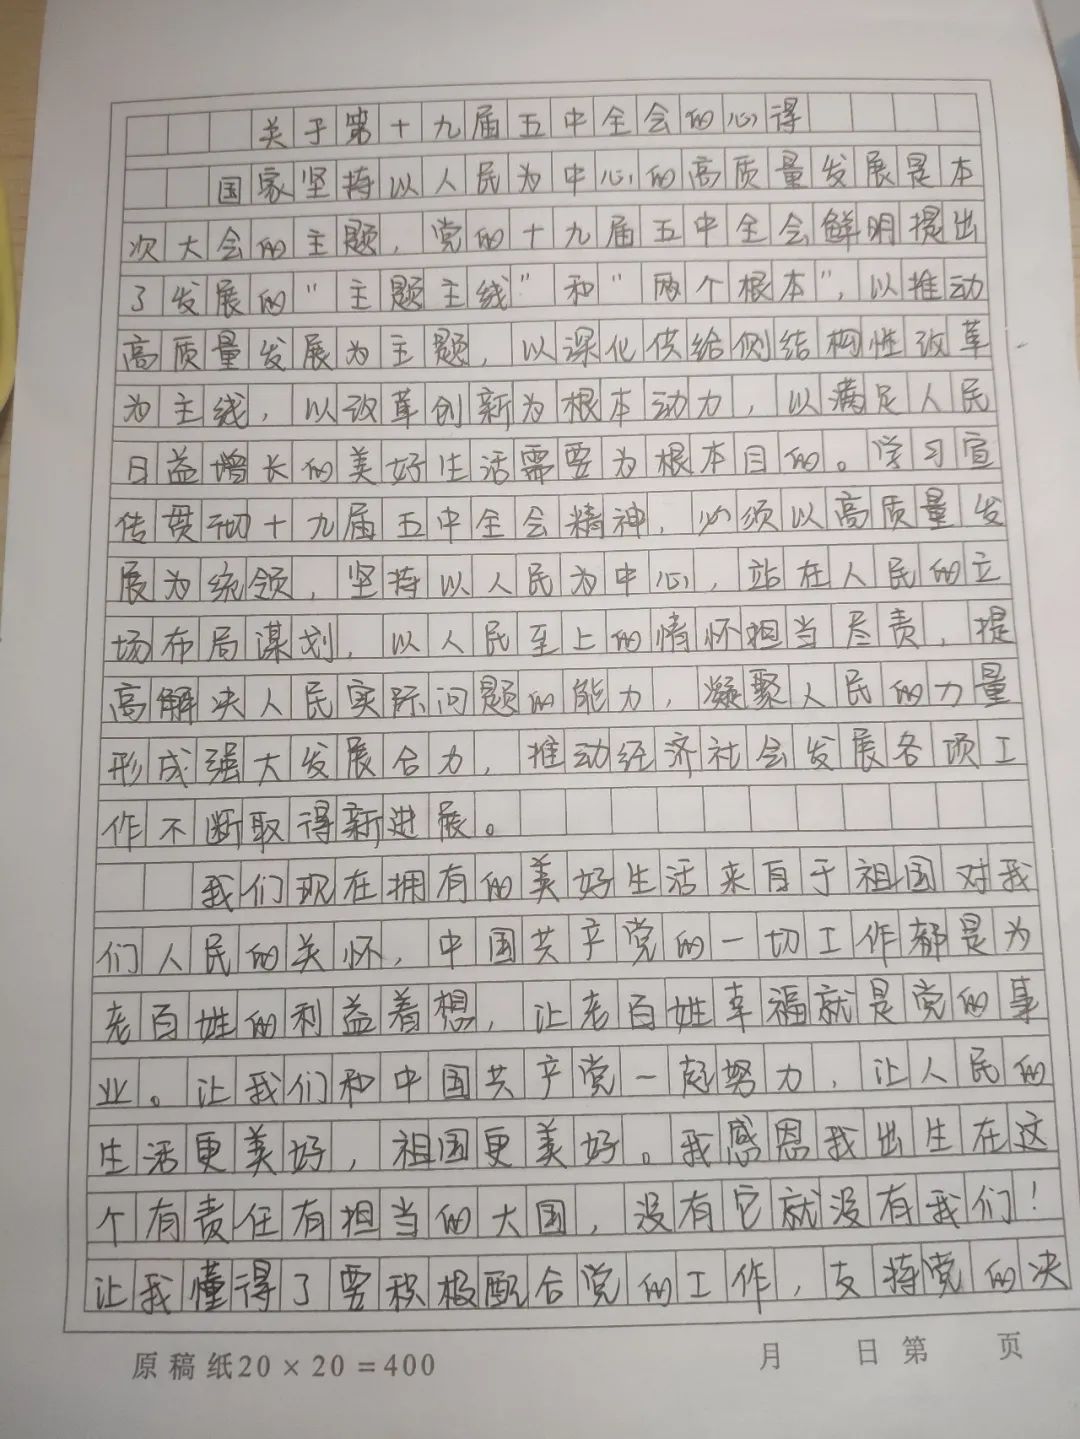 关于第十九届五中全会的心得
国家坚持以人民为中心的高质量发展是本
次大会的主题，党的十九届五中全会鲜明提出
了发展的“主题主线”和“两个根本”，以推动
高质量发展为主题，以深化供给侧结构性改革
为主线，以改革创新为根本动力，以满足人民
日益增长的美好生活需要为根本目的。学习宣
传贯彻十九届五中全会精神，必须以高质量发
展为统领，坚持以人民为中心，站在人民的立
场布局谋划，以人民至上的情怀担当尽责，提
高解决人民实际问题的能力，凝聚人民的力量
形成强大发展合力，推动经济社会发展各项工
作不断取得新进展。
我们现在拥有的美好生活来自于祖国对我
们人民的关怀，中国共产党的一切工作都是为
老百姓的利益着想，让老百姓幸福就是党的事
业。让我们和中国共产党一起努力，让人民的
生活更美好，祖国更美好。我感恩我出生在这
个有责任有担当的大国，没有它就没有我们！
让我懂得了要积极配合党的工作，支持党的决
原稿纸20×20=400 月 日 第 页